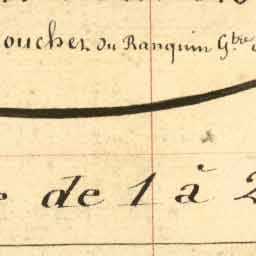 oucher du Ranquin Gbre
de 1 à 2